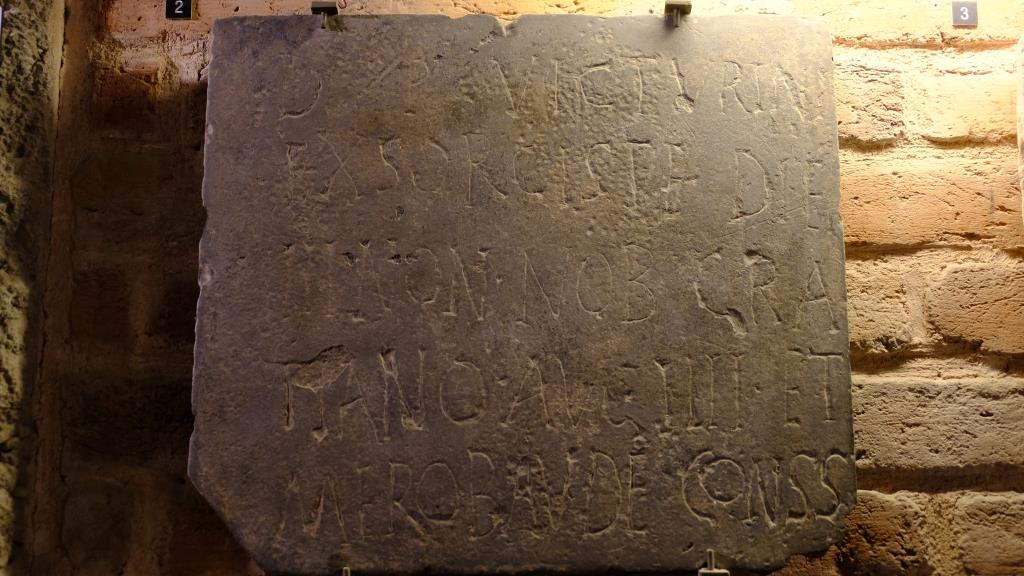 2
3
VICTVRINI
EXSORCISTE DIE
NON · NOB GRA
TIANO · AVG IIII · ET
MEROBAVDE CONSS